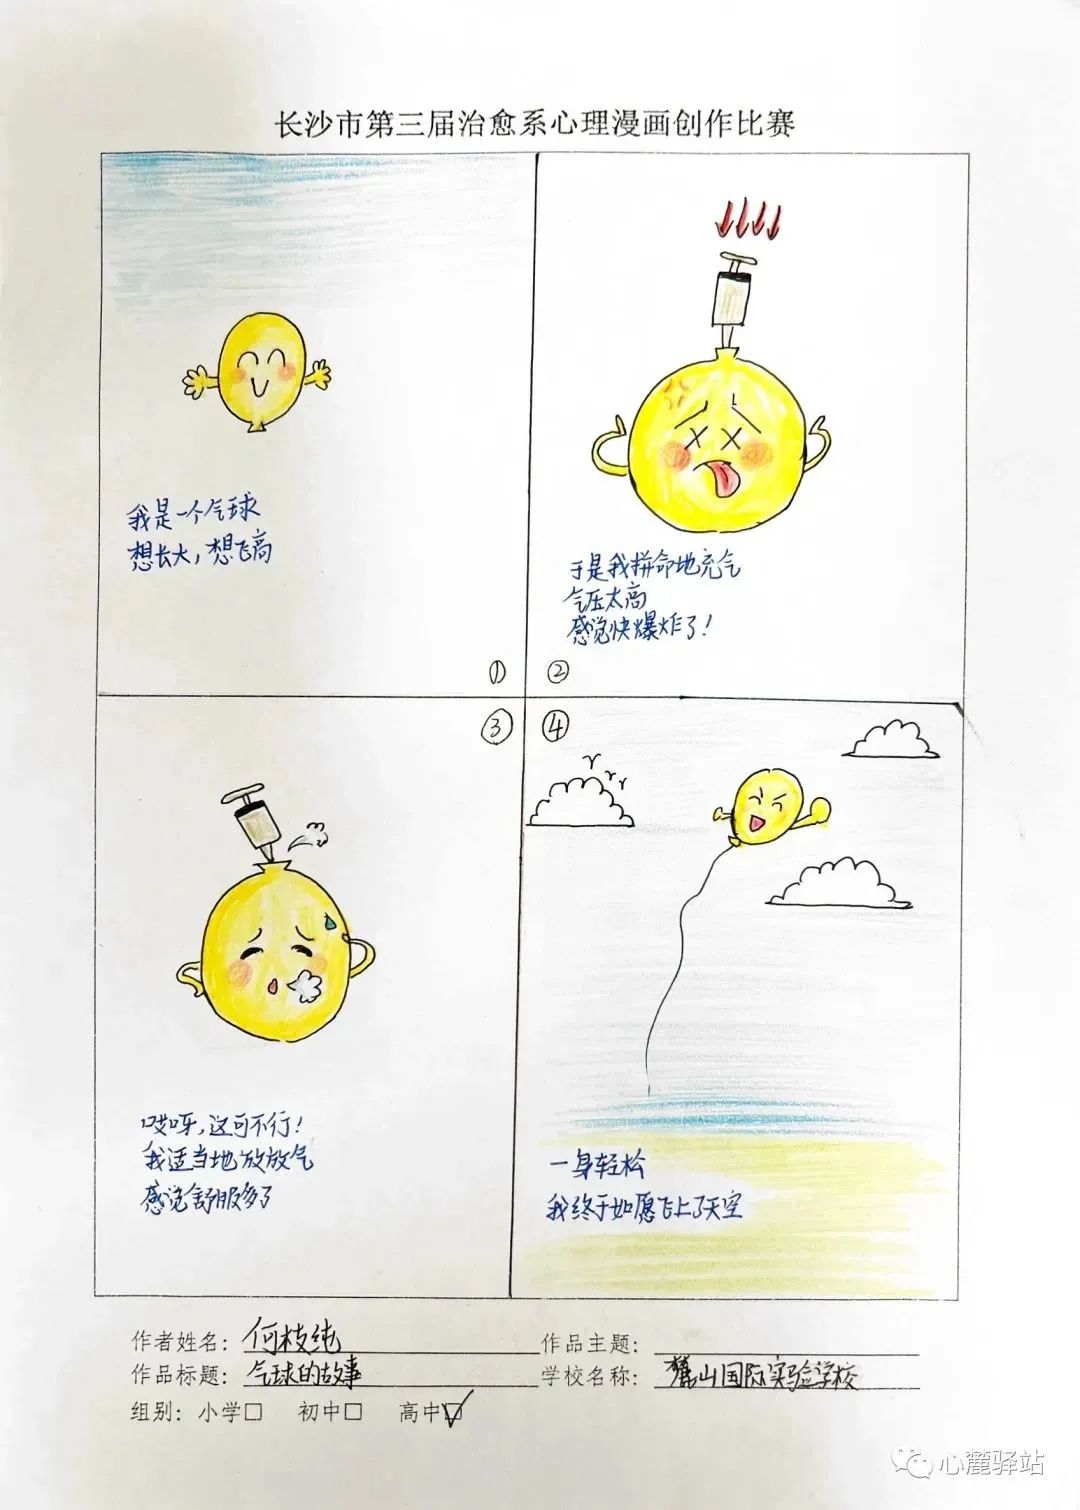 长沙市第三届治愈系心理漫画创作比赛
我是一个气球
想长大，想飞高
①
于是我拼命地充气
气压太高
感觉快爆炸了！
②
③
哎呀，这可不行！
我适当地放放气
感觉舒服多了
④
一身轻松
我终于如愿飞上了天空
作者姓名：何枝纯
作品主题：
作品标题：气球的故事
学校名称：麓山国际实验学校
组别：小学□ 初中□ 高中☑
心麓驿站